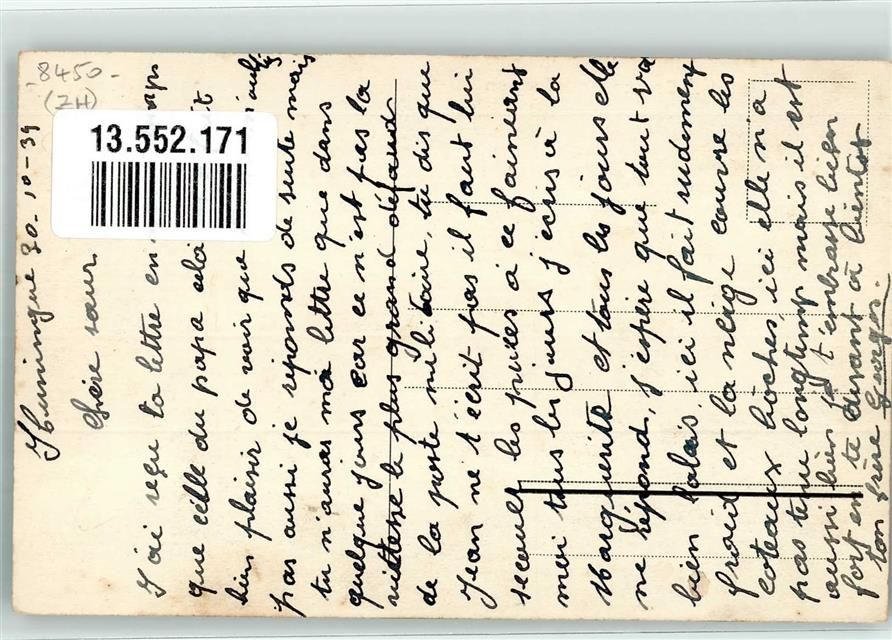 8450-
(ZH)
13.552.171
Huningue 30-10-39
Chère sœur
J'ai reçu ta lettre en temps
que celle du papa cela
bien plaisir de voir que
pas aussi je reponds de suite mais
tu n'auras ma lettre que dans
quelque jours car ce n'est pas la
vitesse le plus grand défaud
de la poste militaire, tu dis que
Jean ne t'écrit pas il faut lui
secouer les puces à ce fainiant
moi tous les jours j'ecris à la
Marguerite et tous les jours elle
me répond, j'espère que tout va
bien là, ici il fait rudement
froid et la neige couvre les
coteaux boches, ici elle n'a
pas tenu longtemps mais il est
aussi bien je t'embrasse bien
fort en te disant à bientot
ton frère Georges.